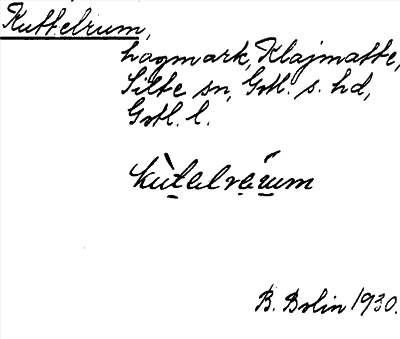 Kuttelrum,
hagmark, Klajmatte,
Silte sn, Gotl. s. hd,
Gotl. l.
kùtalràum
B. Bolin 1930.